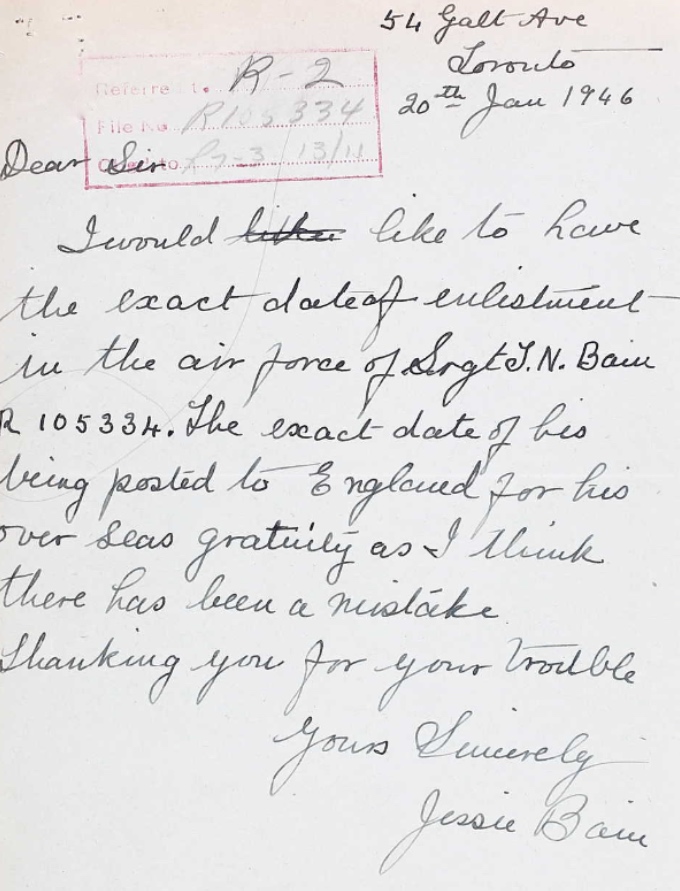 54 Galt Ave
Toronto
20th Jan 1946
Referred to R-2
File No R105334
13/11
Dear Sir
I would like to have
the exact date of enlistment
in the air force of Srgt J.N. Bain
R 105334. The exact date of his
being posted to England for his
over seas gratuity as I think
there has been a mistake
Thanking you for your trouble
Yours Sincerely
Jessie Bain